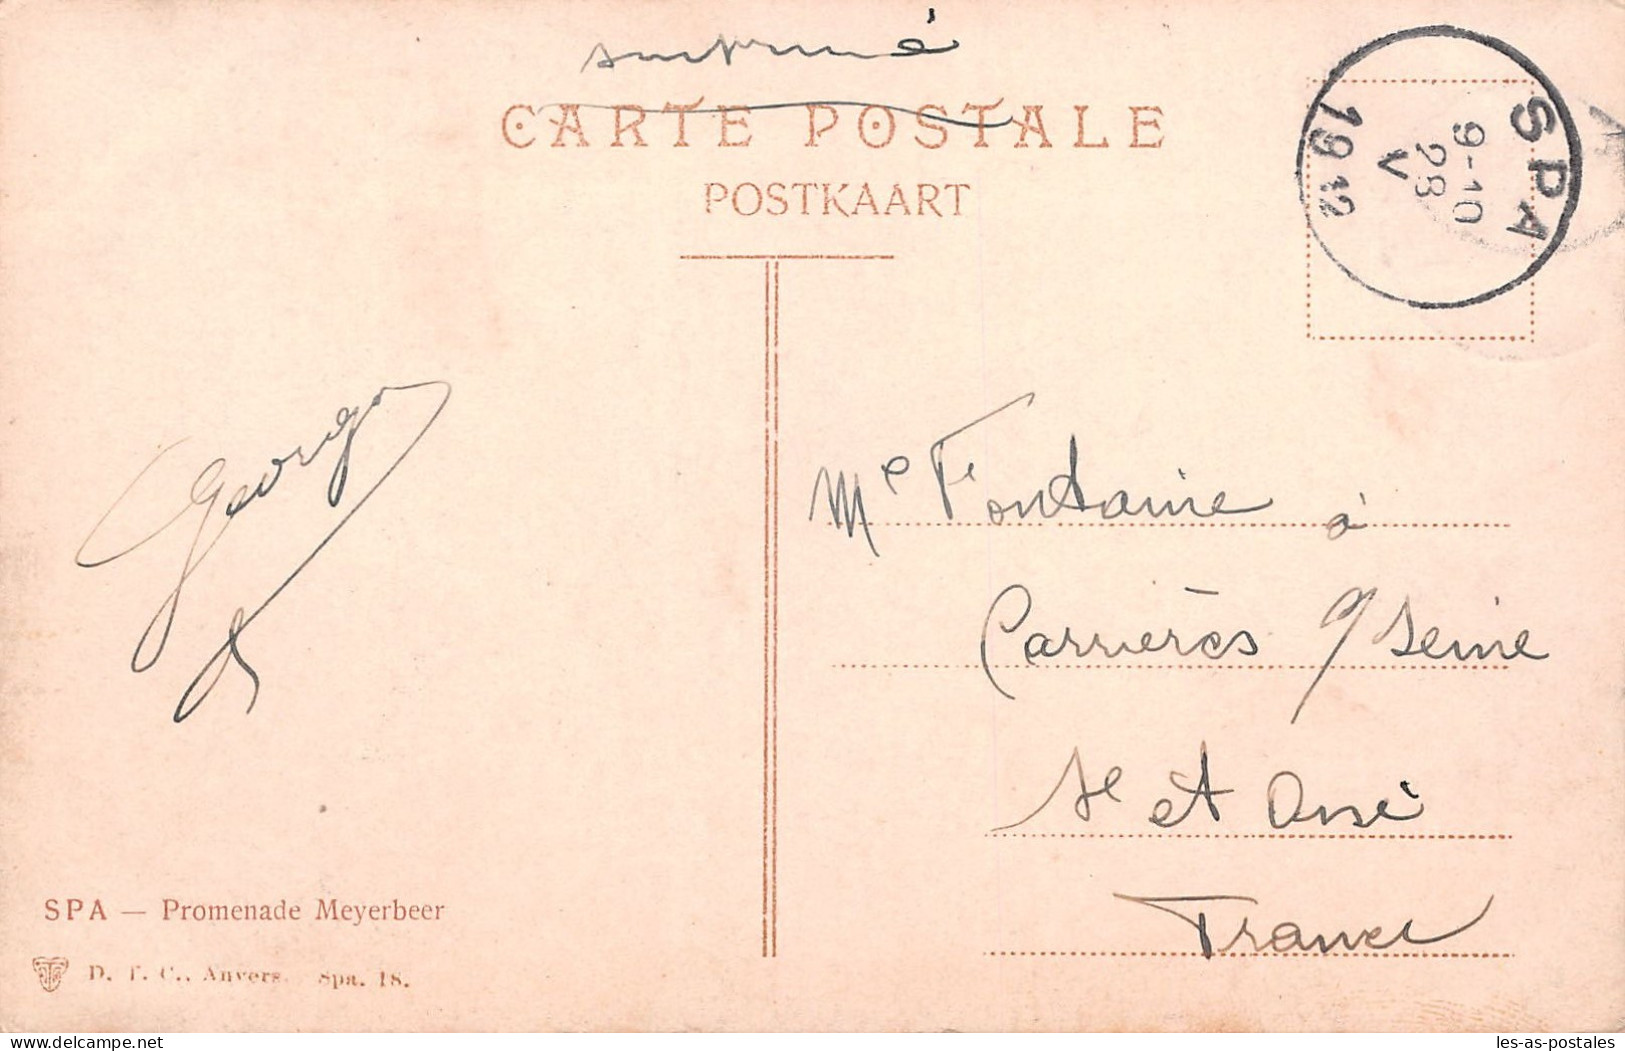 CARTE POSTALE
POSTKAART
SPA
9-10
28
V
1912
Georges
Me Fontaine à
Carrières s/ Seine
Se et Oise
France
SPA — Promenade Meyerbeer
D. T. C., Anvers. Spa. 18.
les-as-postales
www.delcampe.net